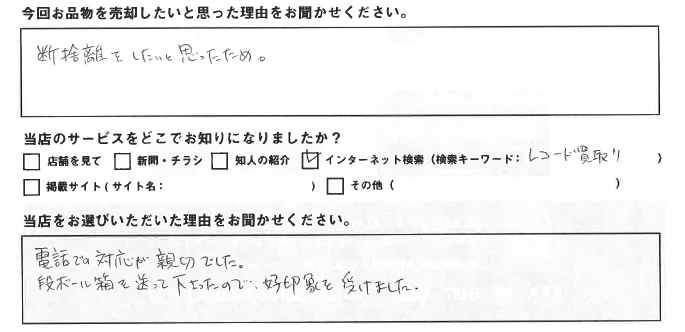 今回お品物を売却したいと思った理由をお聞かせください。
断捨離をしたいと思ったため。
当店のサービスをどこでお知りになりましたか？
□ 店舗を見て □ 新聞・チラシ □ 知人の紹介 ☑ インターネット検索（検索キーワード：レコード買取り）
□ 掲載サイト（サイト名： ） □ その他（ ）
当店をお選びいただいた理由をお聞かせください。
電話での対応が親切でした。
段ボール箱を送って下さったので、好印象を受けました。